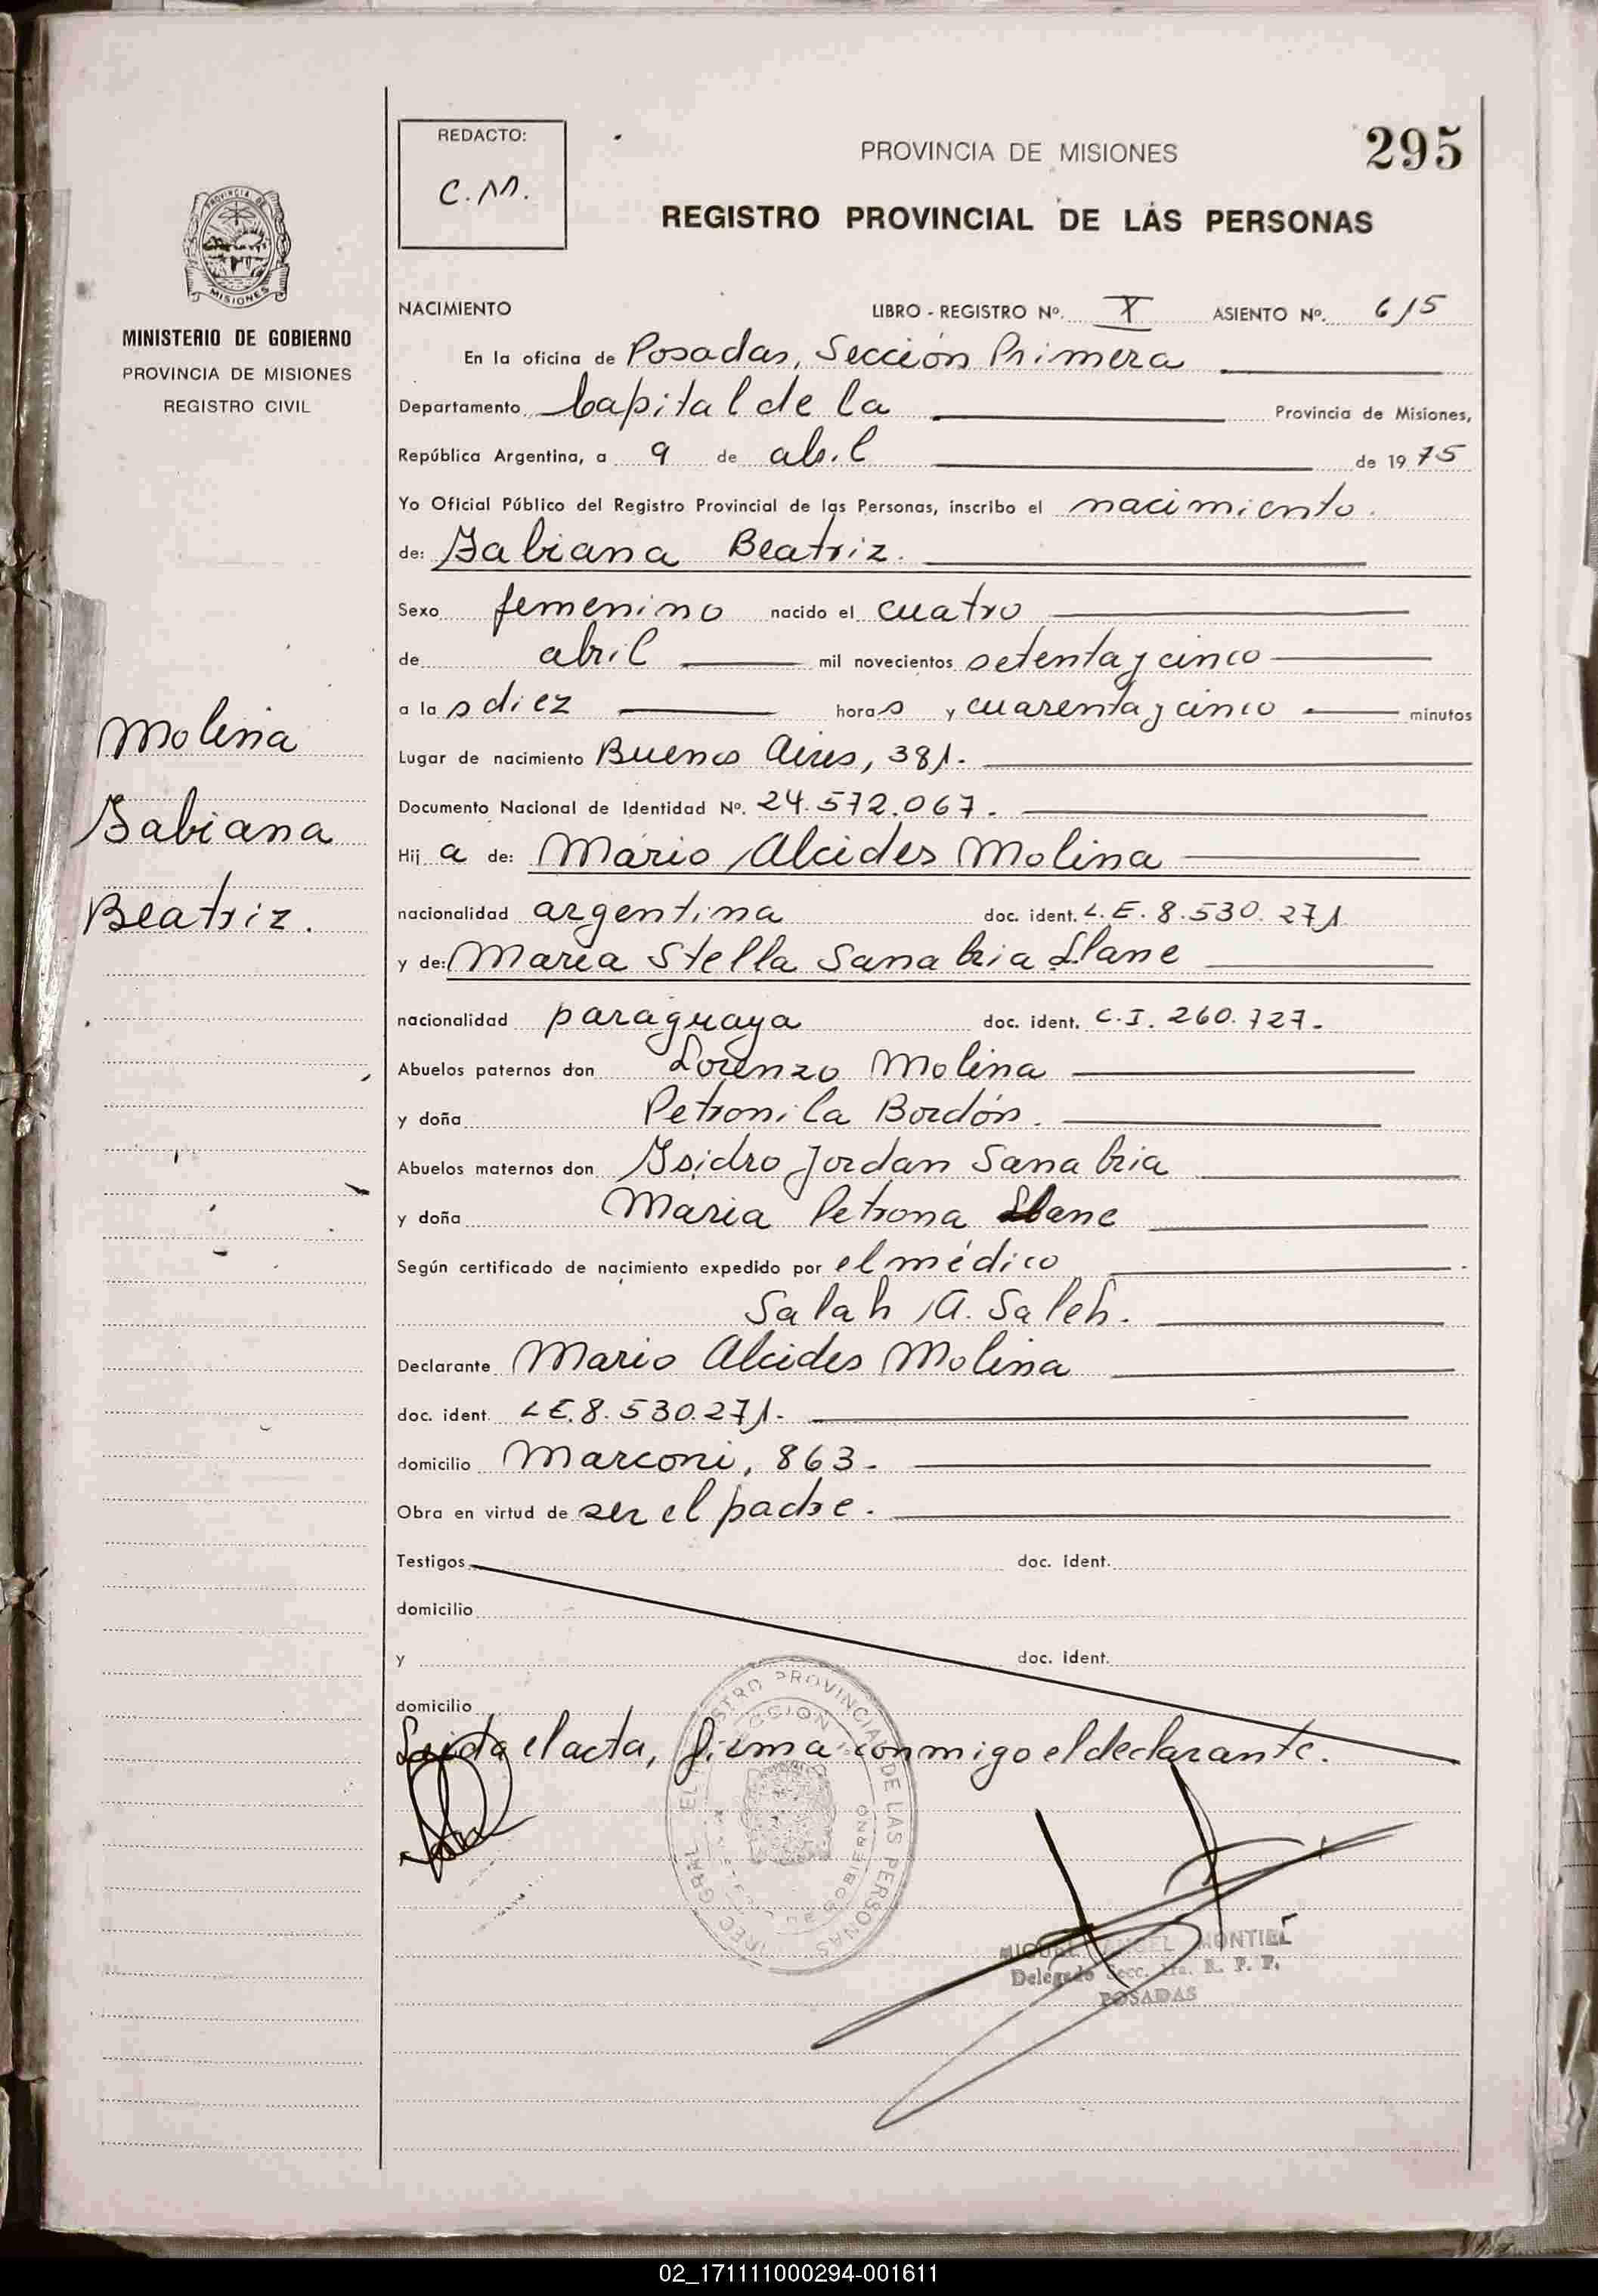 REDACTO:
C.M.
295
PROVINCIA DE MISIONES
REGISTRO PROVINCIAL DE LAS PERSONAS
PROVINCIA DE
MISIONES
MINISTERIO DE GOBIERNO
PROVINCIA DE MISIONES
REGISTRO CIVIL
NACIMIENTO LIBRO - REGISTRO Nº. I ASIENTO Nº. 615
En la oficina de Posadas, Sección Primera
Departamento Capital de la Provincia de Misiones,
República Argentina, a 9 de abril de 1975
Yo Oficial Público del Registro Provincial de las Personas, inscribo el nacimiento.
de: Fabiana Beatriz.
Sexo femenino nacido el cuatro
de abril mil novecientos setenta y cinco
a las diez horas y cuarenta y cinco minutos
Lugar de nacimiento Buenos Aires, 381.
Documento Nacional de Identidad Nº. 24.572.067.
Hija de: Mario Alcides Molina
nacionalidad argentina doc. ident. L.E. 8.530.271
y de: María Stella Sanabria Llane
nacionalidad paraguaya doc. ident. C.I. 260.727.
Abuelos paternos don Lorenzo Molina
y doña Petronila Bordón.
Abuelos maternos don Isidro Jordan Sanabria
y doña Maria Petrona Llane
Según certificado de nacimiento expedido por el médico
Salah A. Saleh.
Declarante Mario Alcides Molina
doc. ident. L.E. 8.530.271.
domicilio Marconi, 863.
Obra en virtud de ser el padre.
Testigos doc. ident.
domicilio
y doc. ident.
domicilio
Leida el acta, firma conmigo el declarante.
Molina
Fabiana
Beatriz.
REGISTRO PROVINCIAL DE LAS PERSONAS
GOBIERNO
MIGUEL ANGEL MONTIEL
Delegado Secc. 1ra. R. P. P.
POSADAS
02_171111000294-001611